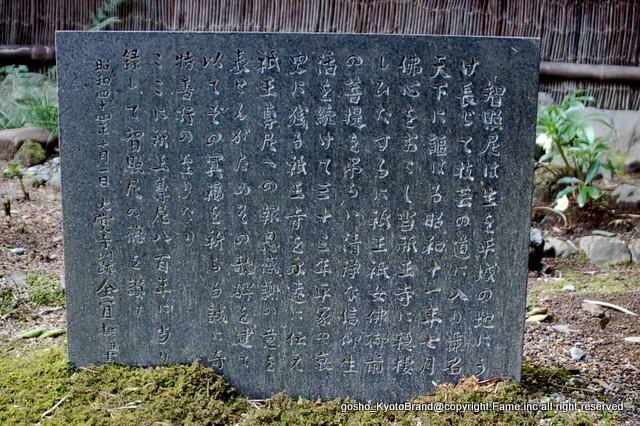 智照尼は生を平城の地にう
け長じて技芸の道に入り芳名
天下に謳はる昭和十一年七月
佛心をおこし当祇王寺に穏棲
しひたすらに祇王祇女佛御前
の菩提を弔い清浄な信仰生
活を続けて三十三年平家の哀
史に残る祇王寺を永遠に伝え
祇王尊尼への報恩感謝の意を
表せんがためその歌碑を建て
以てその冥福を祈らる誠に奇
特善行の至りなり
ここに祇王尊尼八百年に当り
録して智照尼の徳を讃う
昭和四十四年十月一日 大覚寺門跡
gosho_KyotoBrand@copyright.Fame.inc all right reserved